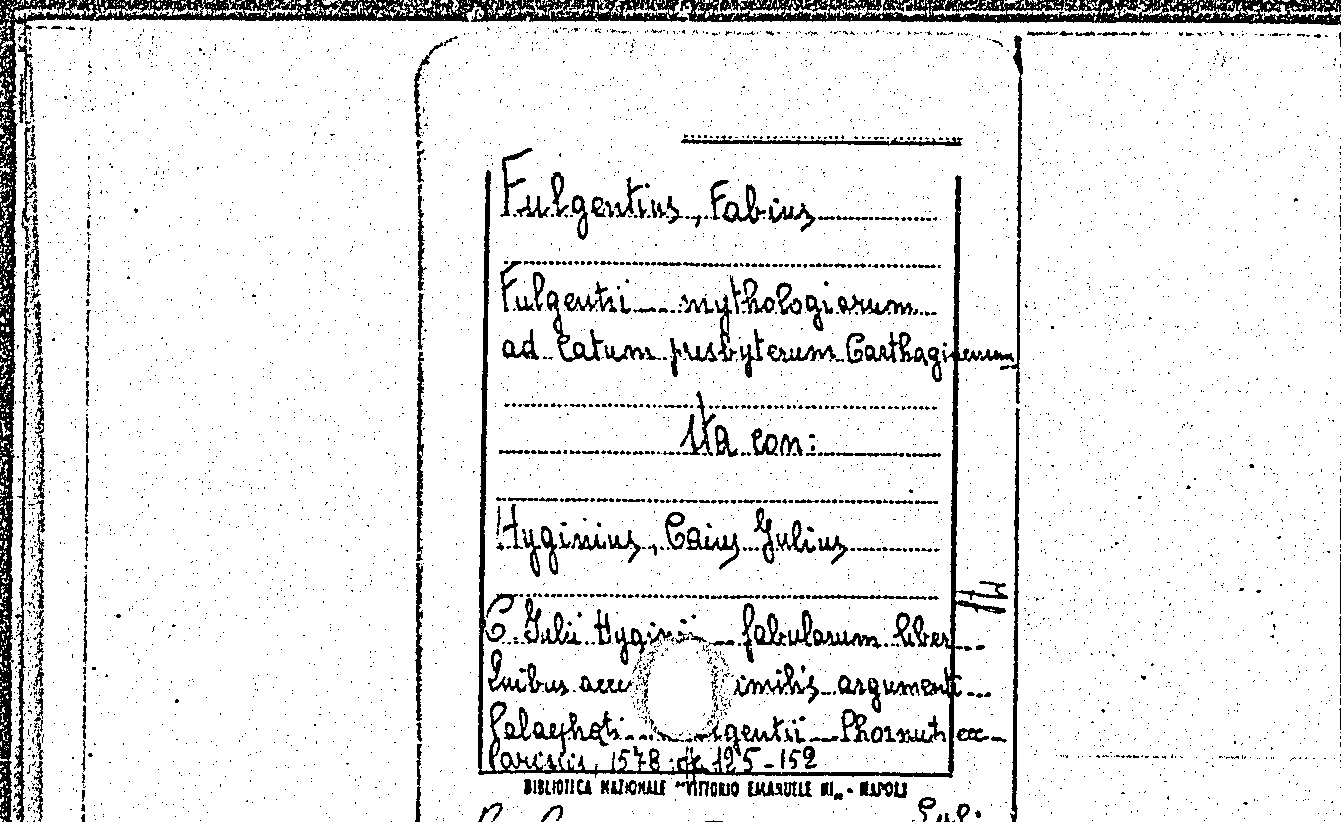 Fulgentius, Fabius
Fulgentii mythologiarum
ad Catum presbyterum Carthaginensem
Sta con:
Hyginius, Caius Julius
C. Julii Hyginii fabularum liber
Quibus acce imilis argumenti
Palaephati lgentii Phornuti ecc
Parisiis, 1578 cc. 125-152
BIBLIOTECA NAZIONALE "VITTORIO EMANUELE III" - NAPOLI